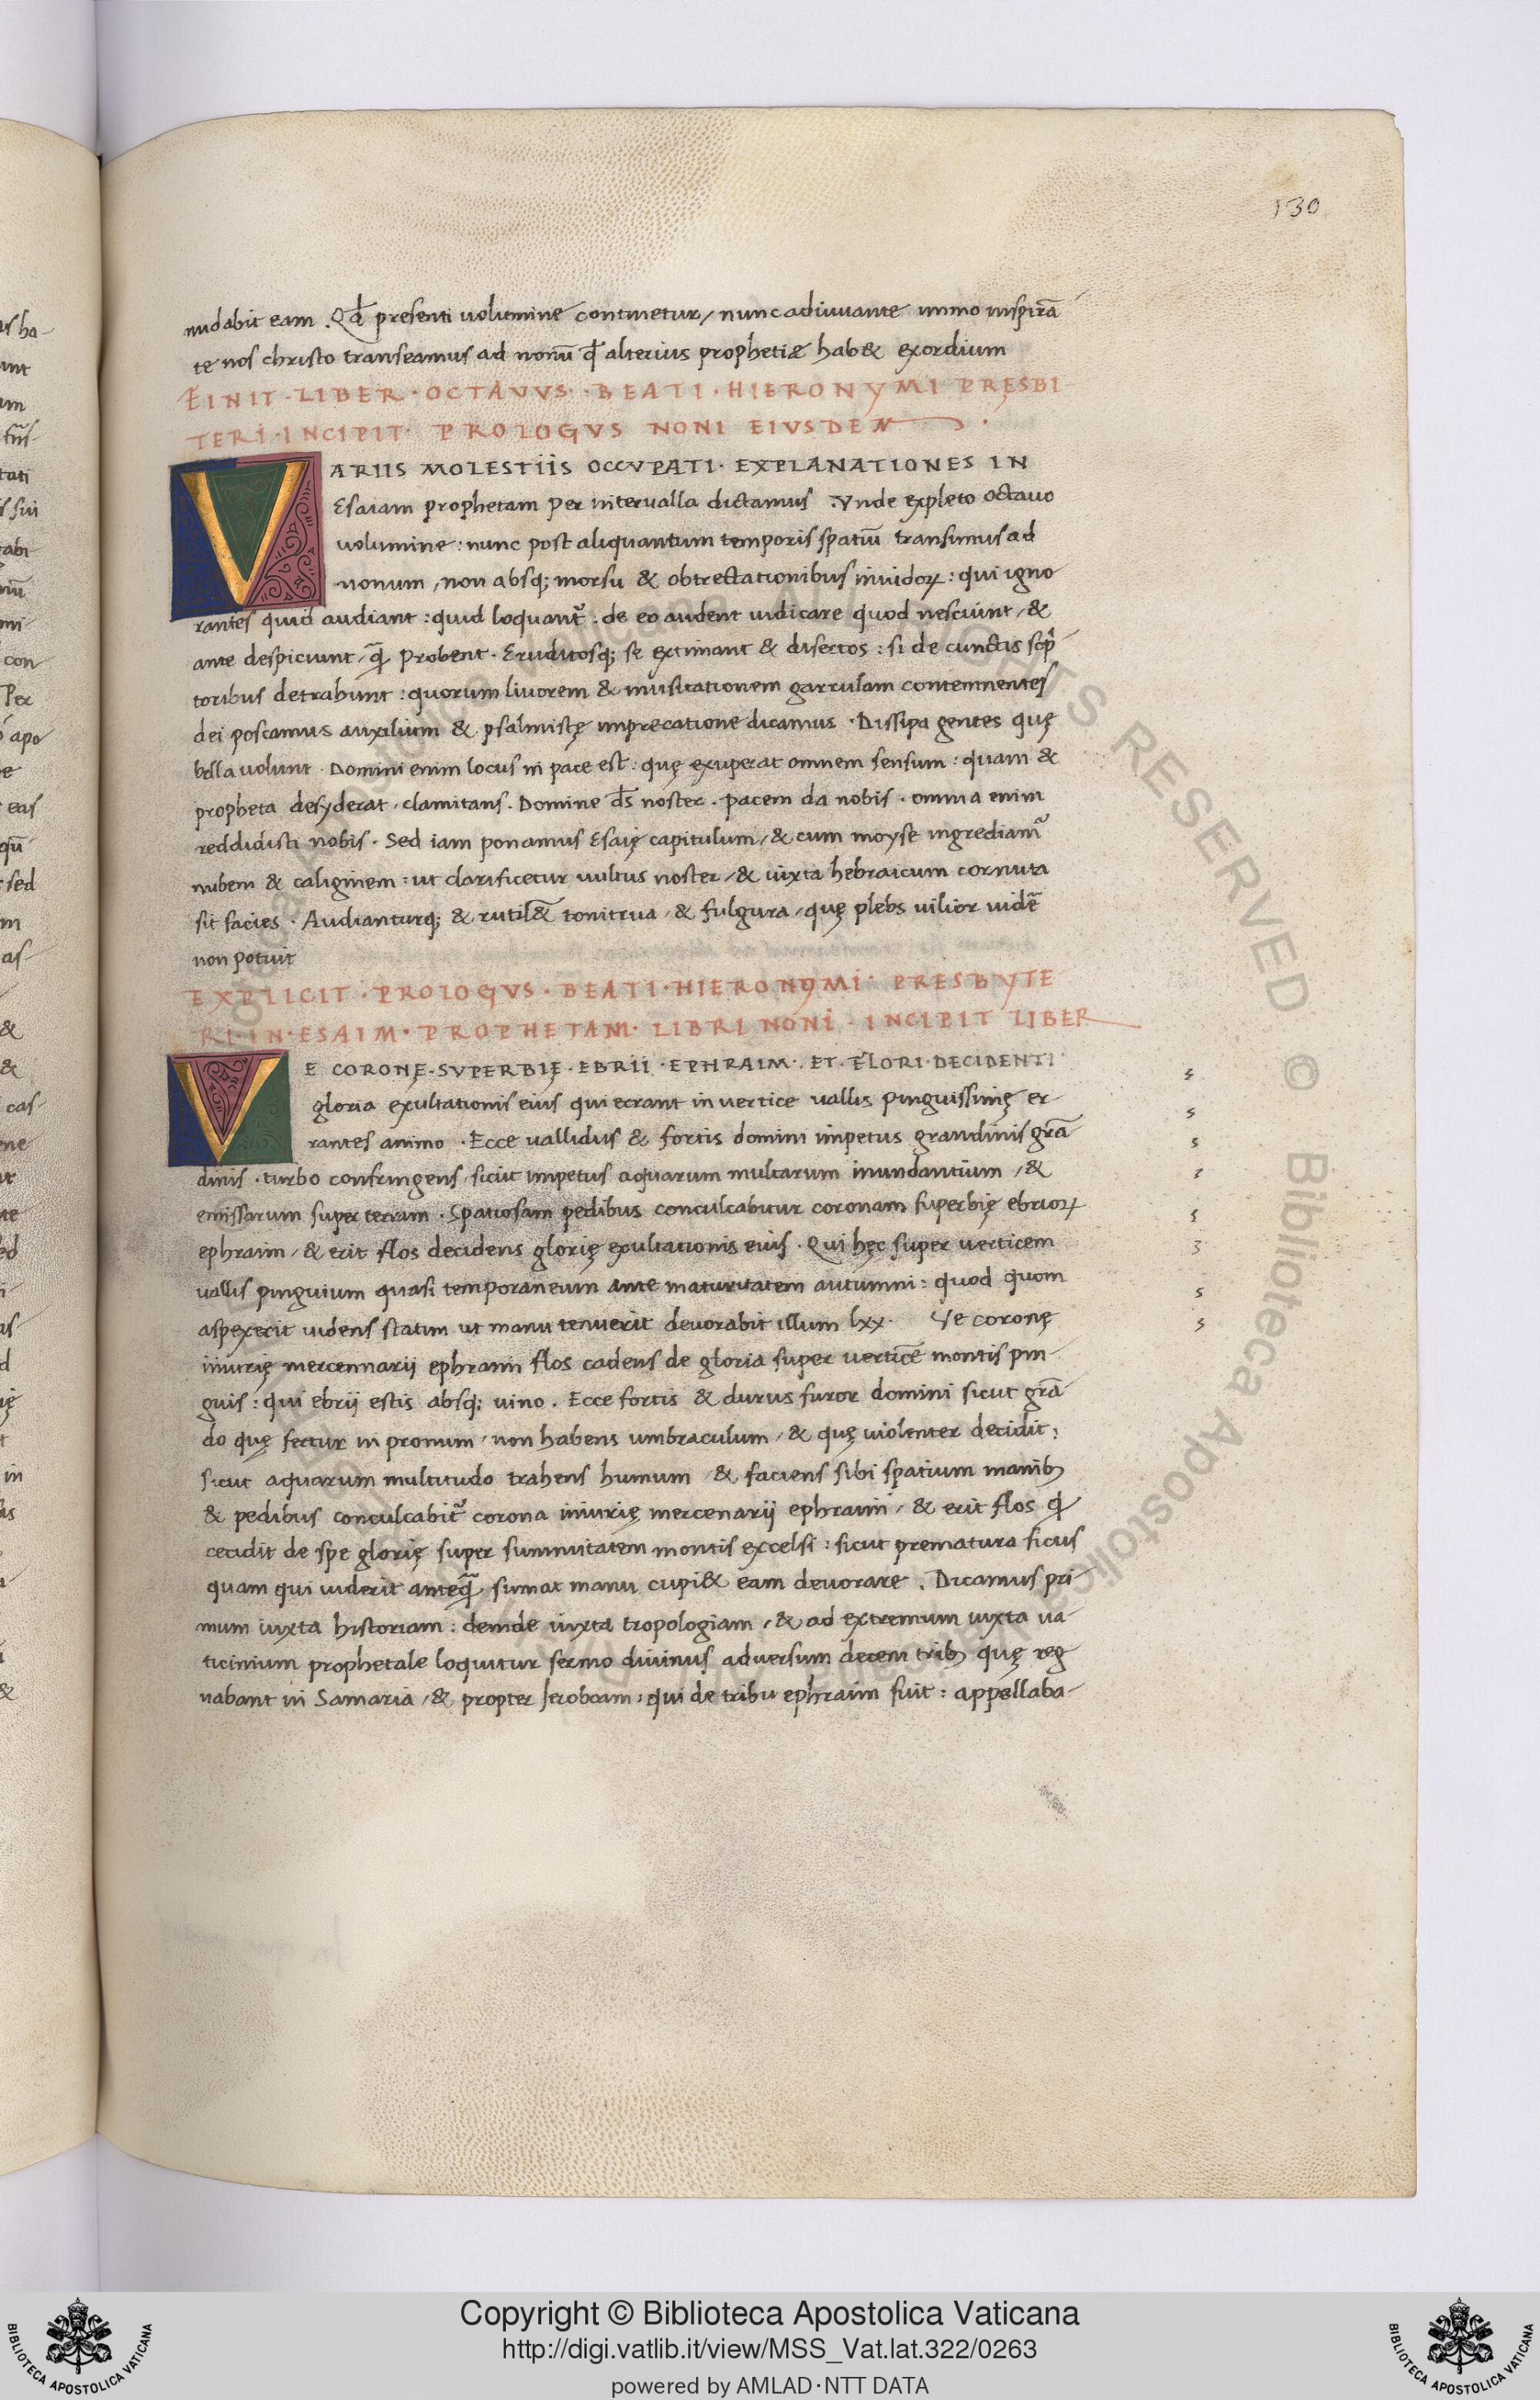 130
nudabit eam . Qđ presenti uolumine continetur / nunc adiuuante immo inspirā
te nos christo transeamus ad nonū qđ alterius prophetiæ hab& exordium
FINIT · LIBER · OCTAVVS · BEATI · HIERONYMI PRĘSBI
TERI · INCIPIT · PROLOGVS NONI EIVSDEM ·
VARIIS MOLESTIIS OCCVPATI · EXPLANATIONES IN
Esaiam prophetam per interualla dictamus . Vnde expleto octauo
uolumine : nunc post aliquantum temporis spatiū transimus ad
nonum , non absq; morsu & obtrectationibus inuidoꝝ : qui igno
rantes quid audiant : quid loquant᷑ . de eo audent iudicare quod nesciunt / &
ante despiciunt / q̄ probent . Eruditosq; se extimant & disertos : si de cunctis scp̄
toribus detrahunt : quorum liuorem & musitationem garrulam contemnentes
dei poscamus auxilium & psalmistę imprecatione dicamus . Dissipa gentes quę
bella uolunt . Domini enim locus in pace est : quę exuperat omnem sensum : quam &
propheta desyderat , clamitans . Domine ds̄ noster . pacem da nobis . omnia enim
reddidisti nobis . Sed iam ponamus Esaię capitulum / & cum moyse ingrediam᷑
nubem & caliginem : ut clarificetur uultus noster / & iuxta hebraicum cornuta
sit facies . Audianturq; & rutil&̄ tonitrua / & fulgura / quę plebs uilior uidē
non potuit
EXPLICIT · PROLOGVS · BEATI · HIERONYMI · PRESBYTE
RI · IN · ESAIM · PROPHETAM · LIBRI NONI · INCIPIT LIBER
VE CORONĘ · SVPERBIĘ · EBRII · EPHRAIM · ET · FLORI · DECIDENTI
gloria exultationis eius qui errant in uertice uallis pinguissimę er
rantes a uino . Ecce uallidus & fortis domini impetus grandinis grā
dinis . turbo confringens / sicut impetus aquarum multarum inundantium / &
emissarum super terram . Spatiosam pedibus conculcabitur coronam superbię ebrioꝝ
ephraim / & erit flos decidens glorię exultationis eius . Qui hęc super uerticem
uallis pinguium quasi temporaneum ante maturitatem autumni : quod quom
aspexerit uidens statim ut manu tenuerit deuorabit illum lxx . Ve coronę
iniurię mercennarij ephraim flos cadens de gloria super verticē montis pin
guis : qui ebrij estis absq; uino . Ecce fortis & durus furor domini sicut grā
do quę fertur in pronum / non habens umbraculum / & quę uiolenter decidit :
sicut aquarum multitudo trahens humum & faciens sibi spatium manib;
& pedibus conculcabit᷑ corona iniurię mercenarij ephraim / & erit flos q̇
cecidit de spe glorię super summitatem montis excelsi : sicut prematura ficus
quam qui uiderit anteq̄ sumat manu cupi& eam deuorare . Dicamus pri
mum iuxta historiam : deinde iuxta tropologiam / & ad extremum iuxta ua
ticinium prophetale loquitur sermo diuinus aduersum decem trib; quę reg
nabant in Samaria / & propter Jeroboam : qui de tribu ephraim fuit : appellaba
Copyright © Biblioteca Apostolica Vaticana
http://digi.vatlib.it/view/MSS_Vat.lat.322/0263
powered by AMLAD·NTT DATA
BIBLIOTECA APOSTOLICA VATICANA
BIBLIOTECA APOSTOLICA VATICANA